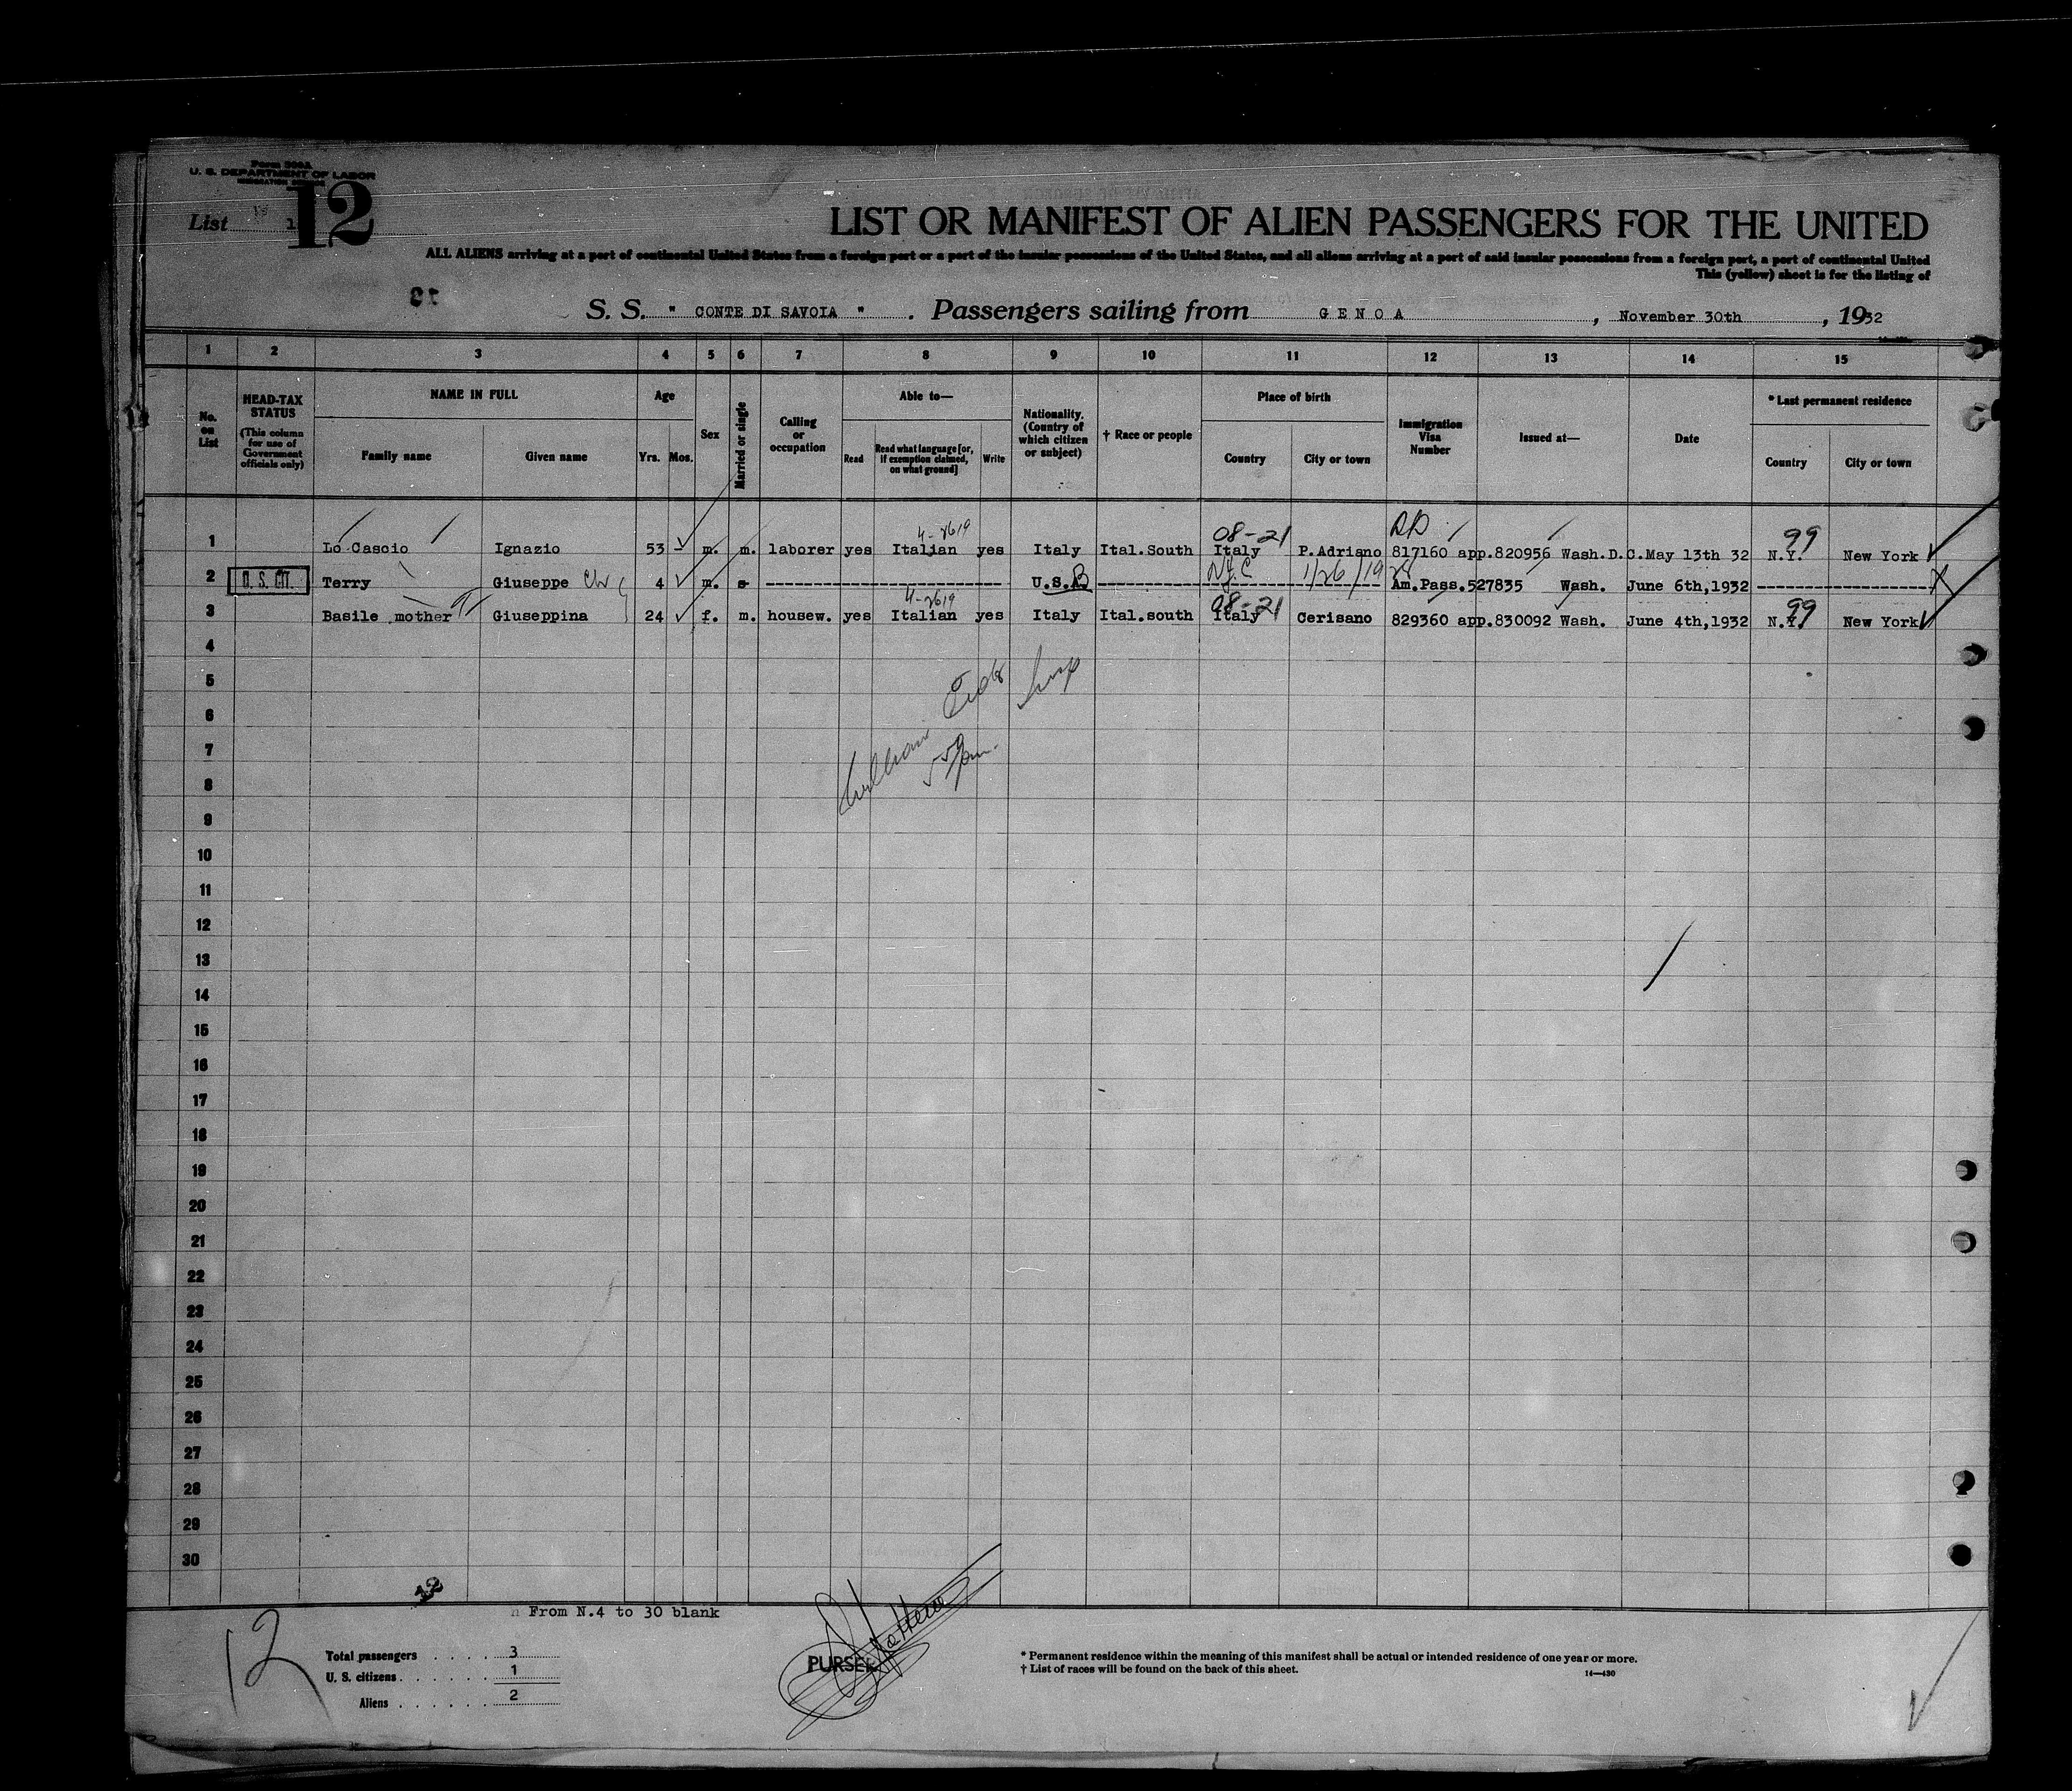 Form 500A
U. S. DEPARTMENT OF LABOR
List 12
LIST OR MANIFEST OF ALIEN PASSENGERS FOR THE UNITED
ALL ALIENS arriving at a port of continental United States from a foreign port or a port of the insular possessions of the United States, and all aliens arriving at a port of said insular possessions from a foreign port, a port of continental United
This (yellow) sheet is for the listing of
S. S. " CONTE DI SAVOIA " . Passengers sailing from G E N O A , November 30th , 1932
1 2 3 4 5 6 7 8 9 10 11 12 13 14 15
No. on List
HEAD-TAX STATUS (This column for use of Government officials only)
NAME IN FULL
Family name Given name
Age
Yrs. Mos.
Sex
Married or single
Calling or occupation
Able to—
Read Read what language [or, if exemption claimed, on what ground] Write
Nationality. (Country of which citizen or subject)
† Race or people
Place of birth
Country City or town
Immigration Visa Number
Issued at—
Date
* Last permanent residence
Country City or town
08-21 99
1 Lo Cascio Ignazio 53 - m. m. laborer yes Italian yes Italy Ital.South Italy P.Adriano 817160 app.820956 Wash.D.C. May 13th 32 N.Y. New York
2 U. S. CIT. Terry Giuseppe 4 m. s U.S.A. Am.Pass.527835 Wash. June 6th,1932
08-21 99
3 Basile mother Giuseppina 24 f. m. housew. yes Italian yes Italy Ital.south Italy Cerisano 829360 app.830092 Wash. June 4th,1932 N.Y. New York
4
5
6
7
8
9
10
11
12
13
14
15
16
17
18
19
20
21
22
23
24
25
26
27
28
29
30
From N.4 to 30 blank
12
Total passengers . . . . . 3
U. S. citizens . . . . . . 1
Aliens . . . . . . 2
PURSER
* Permanent residence within the meaning of this manifest shall be actual or intended residence of one year or more.
† List of races will be found on the back of this sheet.
14—430